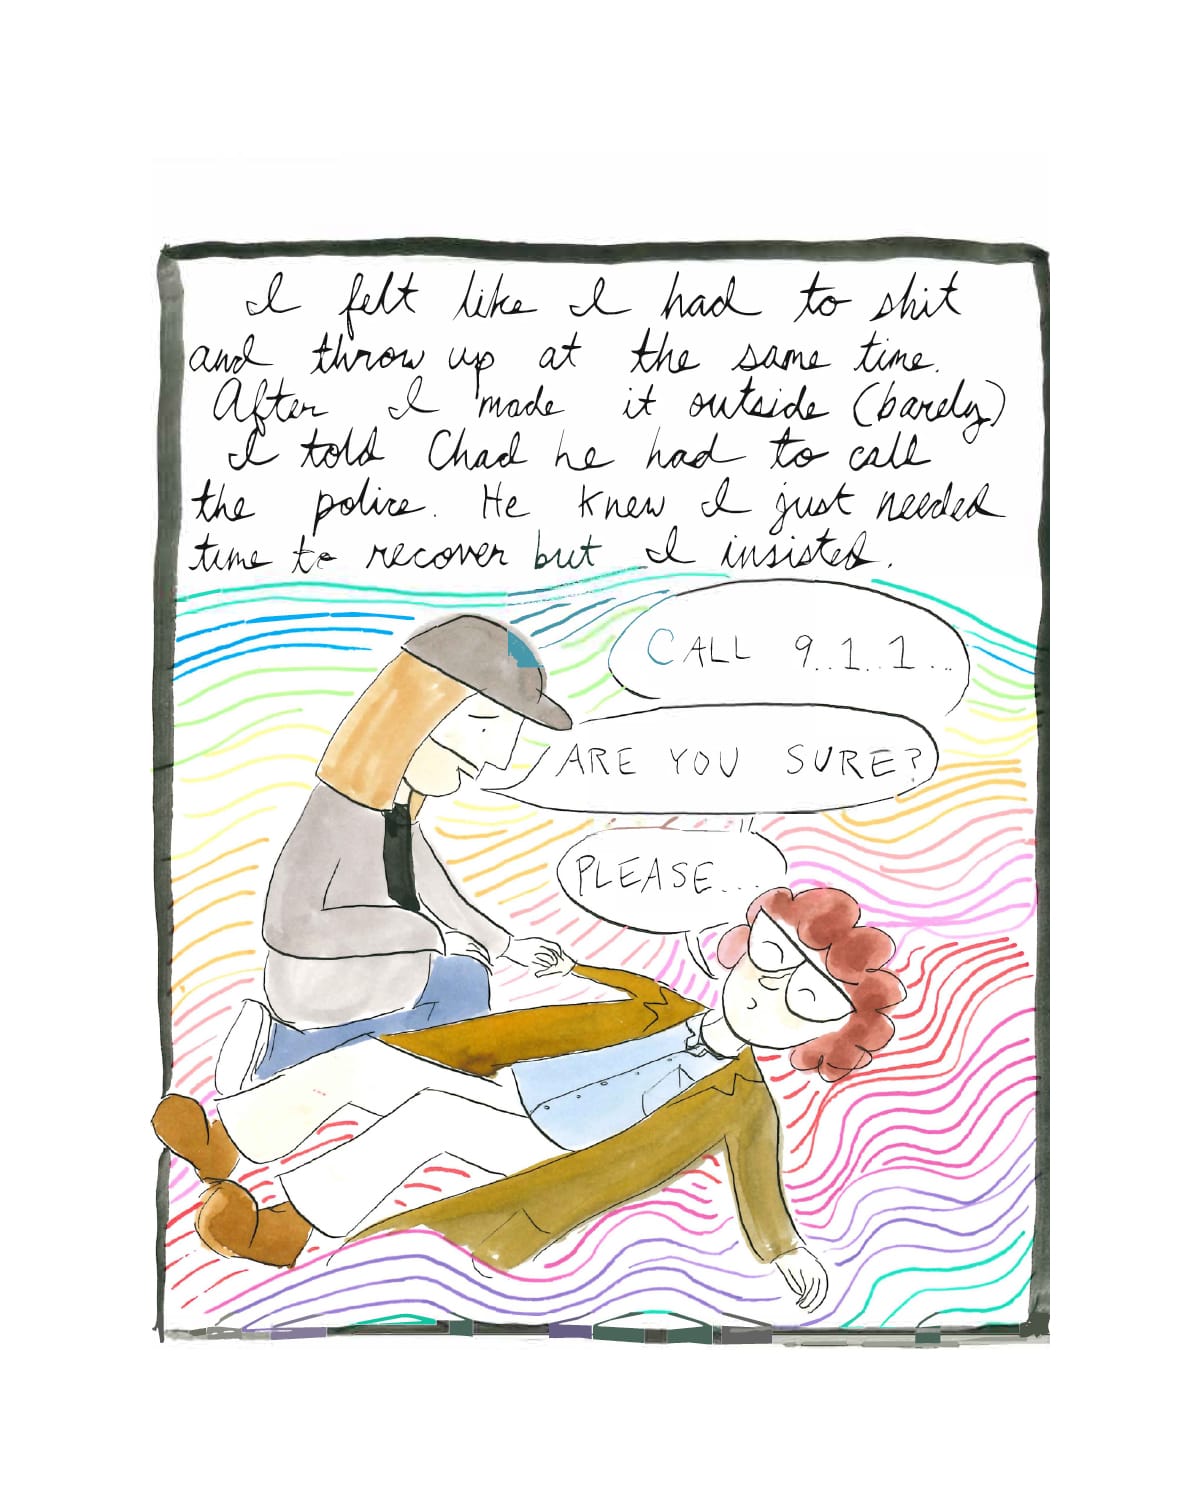 I felt like I had to shit
and throw up at the same time.
After I made it outside (barely)
I told Chad he had to call
the police. He knew I just needed
time to recover but I insisted.
CALL 9..1..1...
ARE YOU SURE?
PLEASE...